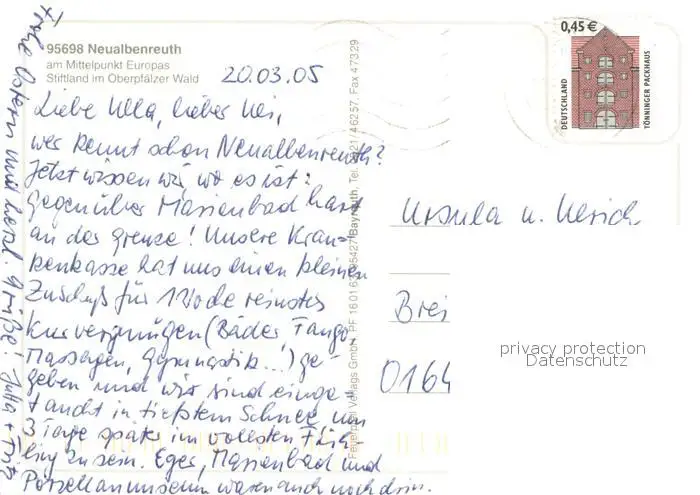 95698 Neualbenreuth
am Mittelpunkt Europas
Stiftland im Oberpfälzer Wald
20.03.05
Liebe Ulla, lieber Uli,
wer kennt schon Neualbenreuth?
Jetzt wissen wir, wo es ist:
gegenüber Marienbad hart
an der Grenze! Unsere Kran-
kenkasse hat uns einen kleinen
Zuschuß für 1 Woche reinstes
Kurvergnügen (Bäder, Fango,
Massagen, Gymnastik...) ge-
geben und wir sind einge-
taucht in tiefstem Schnee um
3 Tage später im vollsten Früh-
ling zu sein. Eger, Marienbad und
Porzellanmuseum waren auch noch drin.
Frohe Ostern und herzl. Grüße! Jutta + Fritz
Feuerpfeil Verlags GmbH, PF 1601 63, 95427 Bayreuth, Tel. 0921/46257, Fax 47329
0,45 €
DEUTSCHLAND
TÖNNINGER PACKHAUS
Ursula u. Ulrich
Brei
0164
privacy protection
Datenschutz